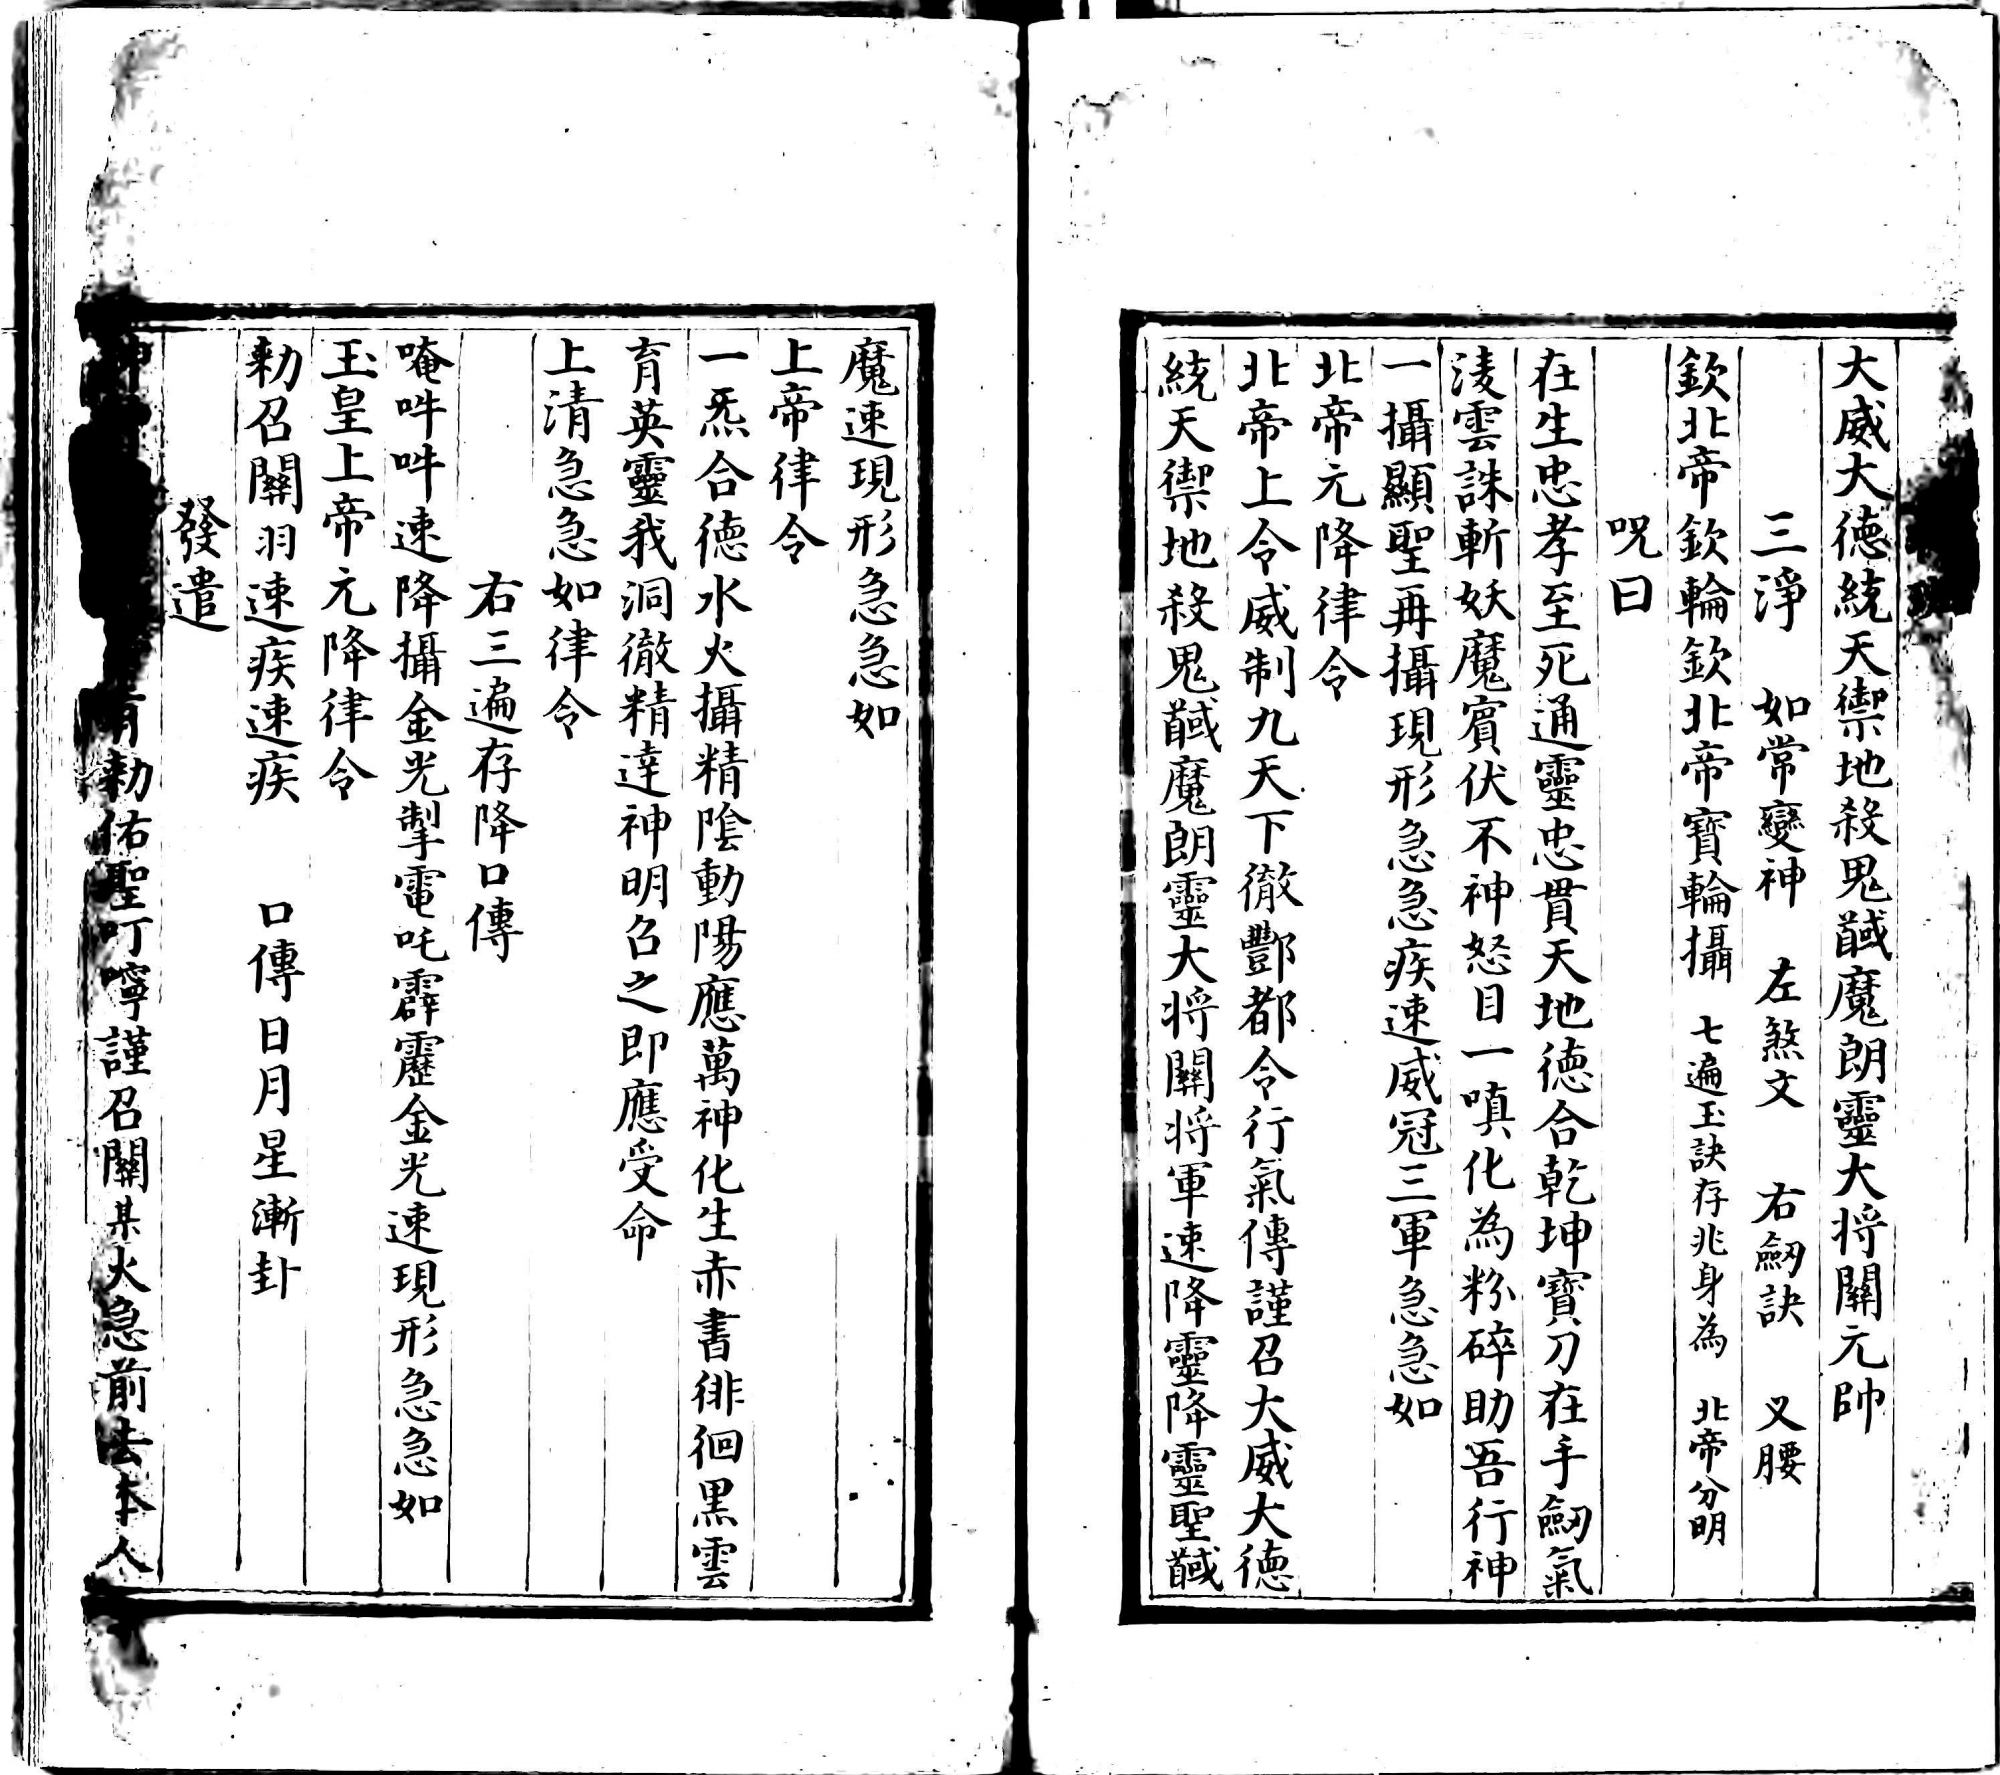 大威大德統天禦地殺鬼馘魔朗靈大将關元帥
三淨　如常變神　左煞文　右劒訣　叉腰
欽北帝欽輪欽北帝寳輪攝　七遍玉訣存兆身為　北帝分明
呪曰
在生忠孝至死通靈忠貫天地徳合乾坤寳刀在手劒氣
淩雲誅斬妖魔賔伏不神怒目一嗔化為粉碎助吾行神
一攝顯聖再攝現形急急疾速威冠三軍急急如
北帝元降律令
北帝上令威制九天下徹酆都令行氣傳謹召大威大德
統天禦地殺鬼馘魔朗靈大将關将軍速降靈降靈聖馘
魔速現形急急如
上帝律令
一炁合德水火攝精陰動陽應萬神化生赤書徘徊黒雲
育英靈我洞徹精達神明召之即應受命
上清急急如律令
右三遍存降口傳
唵吽吽速降攝金光掣電吒霹靂金光速現形急急如
玉皇上帝元降律令
勑召關羽速疾速疾　口傳日月星漸卦
發遣
有勑佑聖叮嚀謹召關某火急前去本人